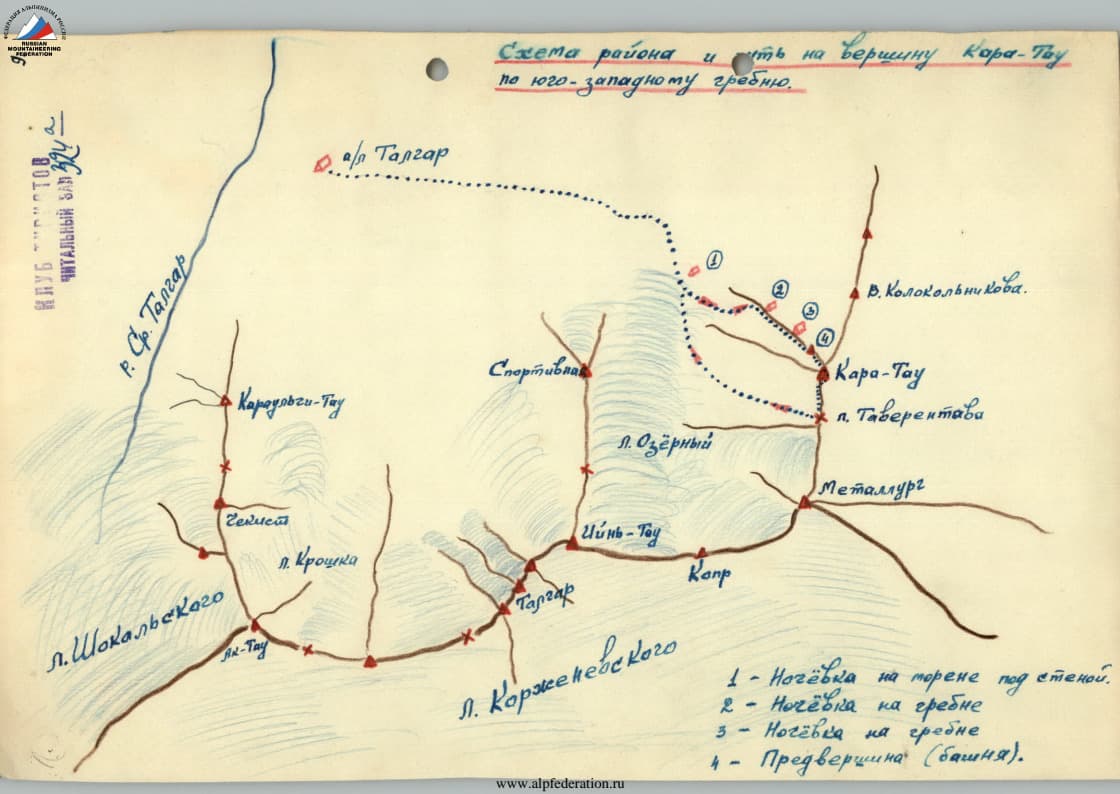 ФЕДЕРАЦИЯ АЛЬПИНИЗМА РОССИИ
RUSSIAN
MOUNTAINEERING
FEDERATION
Схема района и путь на вершину Кара-Тау
по юго-западному гребню.
КЛУБ ТУРИСТОВ
ЧИТАЛЬНЫЙ ЗАЛ
324а
а/л Талгар
р. Ср. Талгар
1
2
3
4
В. Колокольникова.
Спортивная
Кара-Тау
Караульчи-Тау
п. Таверентава
л. Озёрный
Металлург
Чекист
Ийнь-Тау
л. Крошка
Копр
Талгар
л. Шокальского
Ак-Тау
л. Корженевского
1 - Ночёвка на морене под стеной.
2 - Ночёвка на гребне
3 - Ночёвка на гребне
4 - Предвершина (башня).
www.alpfederation.ru